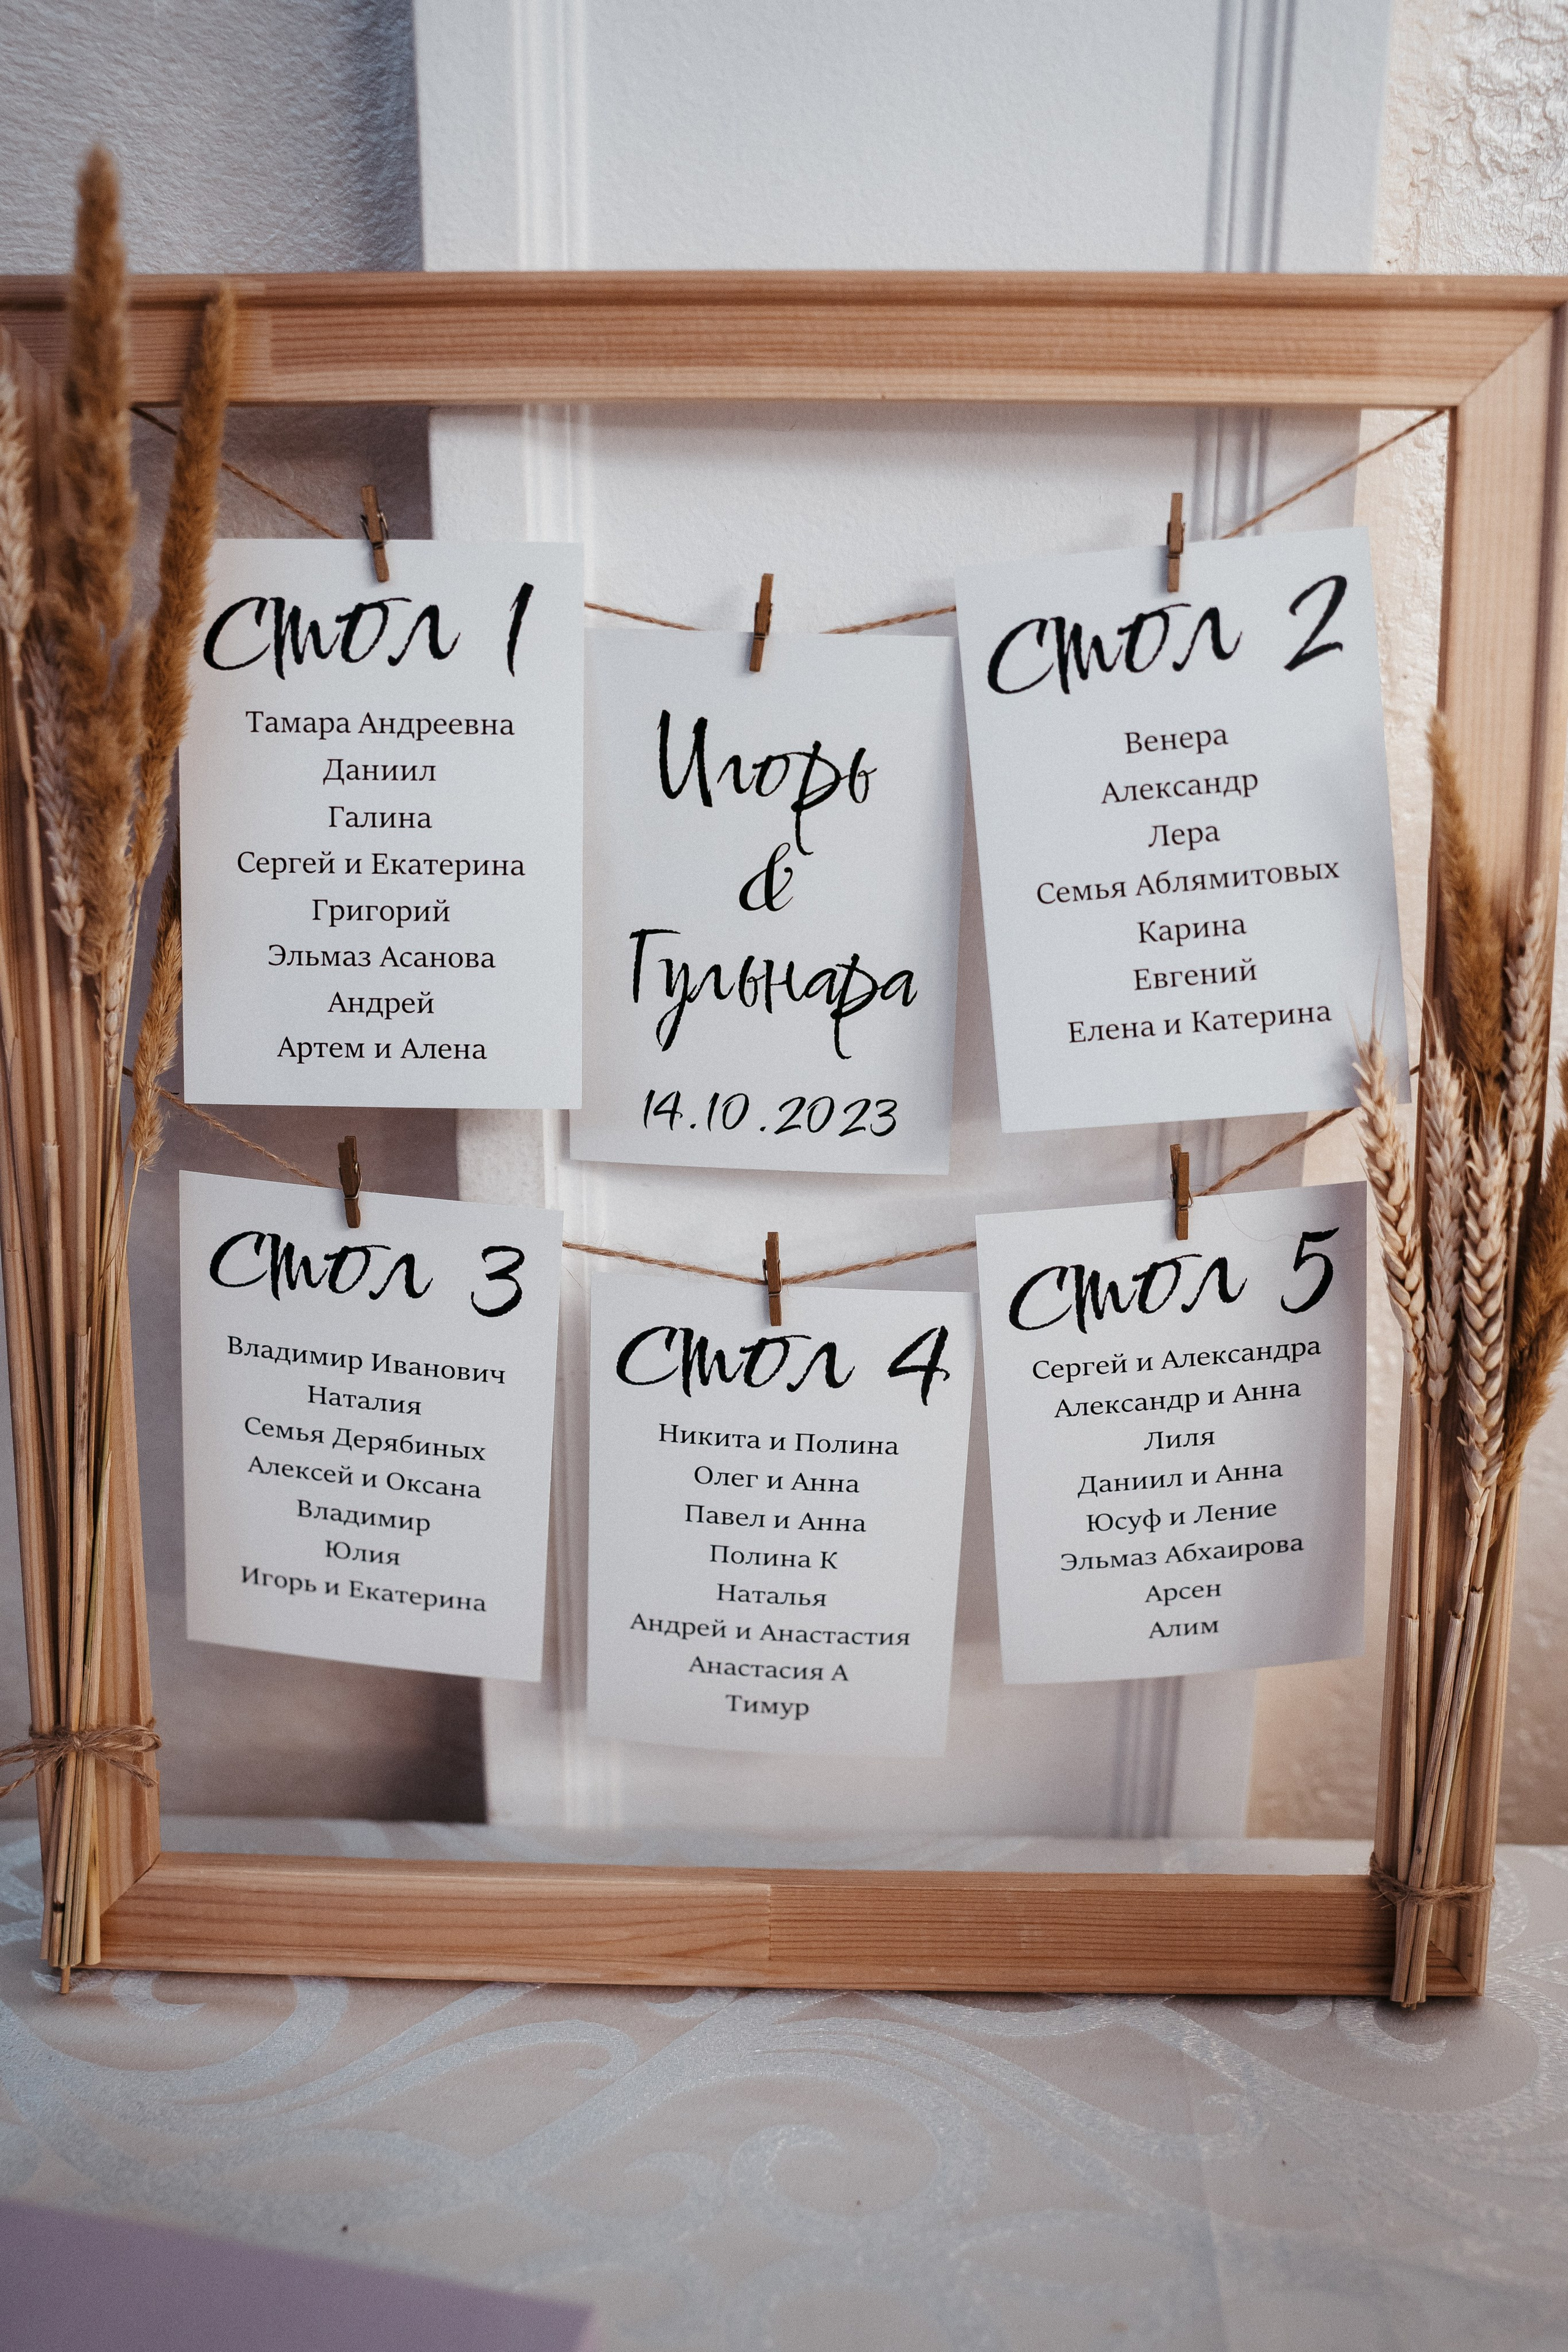 Стол 1
Тамара Андреевна
Даниил
Галина
Сергей и Екатерина
Григорий
Эльмаз Асанова
Андрей
Артем и Алена
Игорь
&
Гульнара
14.10.2023
Стол 2
Венера
Александр
Лера
Семья Аблямитовых
Карина
Евгений
Елена и Катерина
Стол 3
Владимир Иванович
Наталия
Семья Дерябиных
Алексей и Оксана
Владимир
Юлия
Игорь и Екатерина
Стол 4
Никита и Полина
Олег и Анна
Павел и Анна
Полина К
Наталья
Андрей и Анастастия
Анастасия А
Тимур
Стол 5
Сергей и Александра
Александр и Анна
Лиля
Даниил и Анна
Юсуф и Ление
Эльмаз Абхаирова
Арсен
Алим